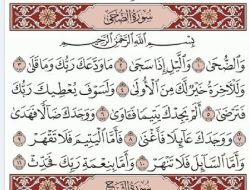 سورة الضحى
بسم الله الرحمن الرحيم
والضحى ١ والليل إذا سجى ٢ ما ودعك ربك وما قلى ٣
وللآخرة خير لك من الأولى ٤ ولسوف يعطيك ربك
فترضى ٥ ألم يجدك يتيما فآوى ٦ ووجدك ضالا فهدى
٧ ووجدك عائلا فأغنى ٨ فأما اليتيم فلا تقهر ٩
وأما السائل فلا تنهر ١٠ وأما بنعمة ربك فحدث ١١